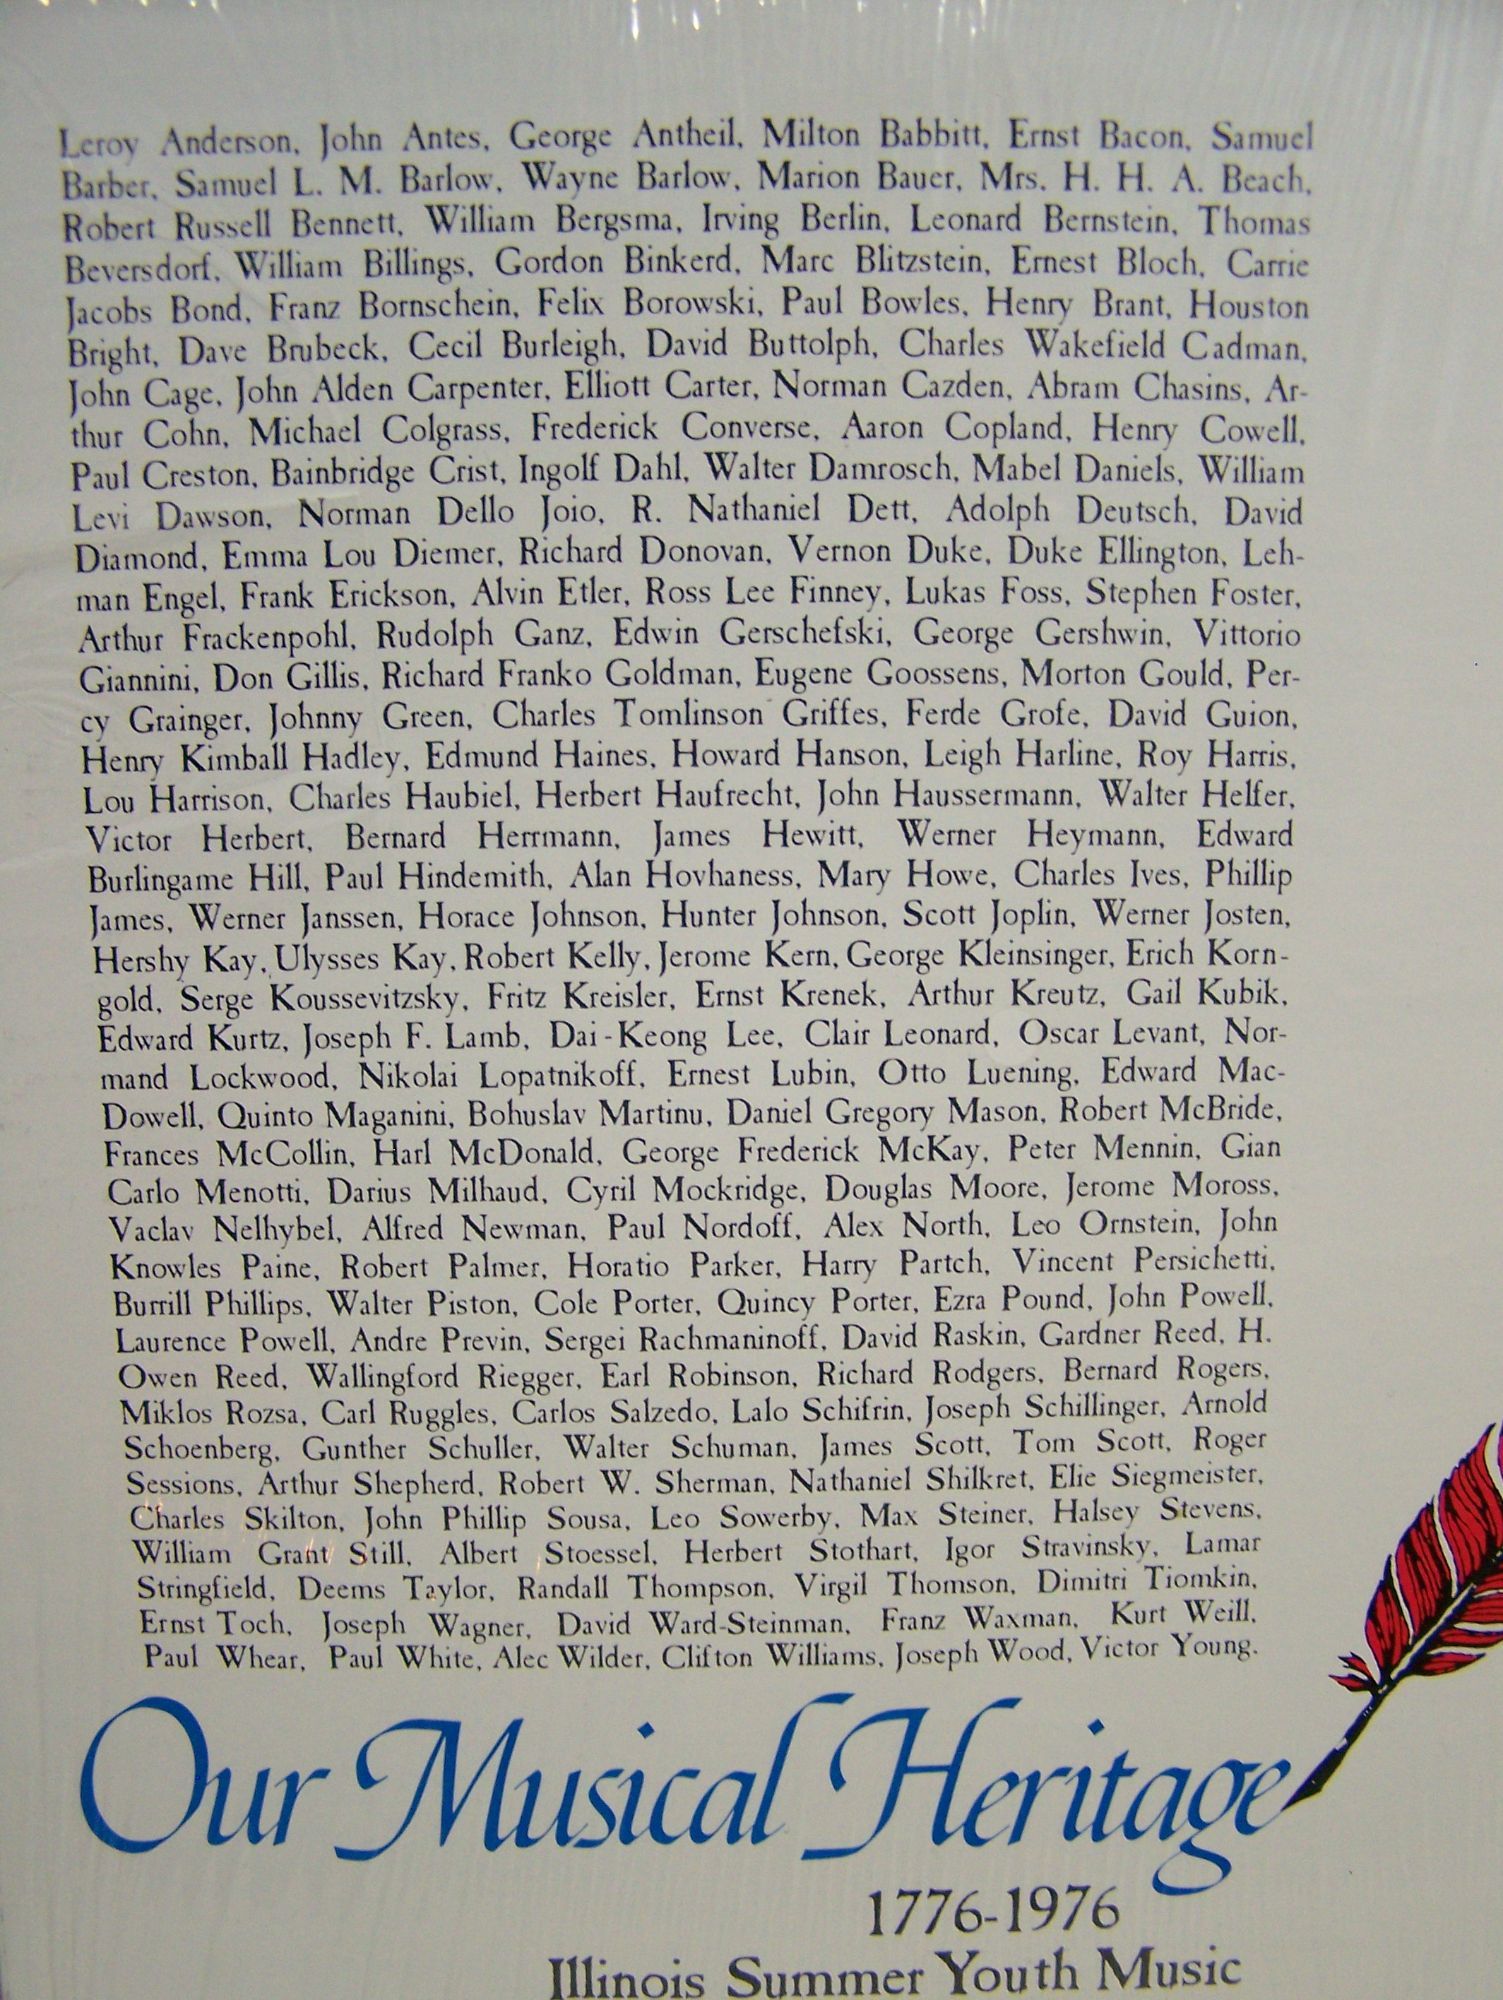 Leroy Anderson, John Antes, George Antheil, Milton Babbitt, Ernst Bacon, Samuel
Barber, Samuel L. M. Barlow, Wayne Barlow, Marion Bauer, Mrs. H. H. A. Beach,
Robert Russell Bennett, William Bergsma, Irving Berlin, Leonard Bernstein, Thomas
Beversdorf, William Billings, Gordon Binkerd, Marc Blitzstein, Ernest Bloch, Carrie
Jacobs Bond, Franz Bornschein, Felix Borowski, Paul Bowles, Henry Brant, Houston
Bright, Dave Brubeck, Cecil Burleigh, David Buttolph, Charles Wakefield Cadman,
John Cage, John Alden Carpenter, Elliott Carter, Norman Cazden, Abram Chasins, Ar-
thur Cohn, Michael Colgrass, Frederick Converse, Aaron Copland, Henry Cowell,
Paul Creston, Bainbridge Crist, Ingolf Dahl, Walter Damrosch, Mabel Daniels, William
Levi Dawson, Norman Dello Joio, R. Nathaniel Dett, Adolph Deutsch, David
Diamond, Emma Lou Diemer, Richard Donovan, Vernon Duke, Duke Ellington, Leh-
man Engel, Frank Erickson, Alvin Etler, Ross Lee Finney, Lukas Foss, Stephen Foster,
Arthur Frackenpohl, Rudolph Ganz, Edwin Gerschefski, George Gershwin, Vittorio
Giannini, Don Gillis, Richard Franko Goldman, Eugene Goossens, Morton Gould, Per-
cy Grainger, Johnny Green, Charles Tomlinson Griffes, Ferde Grofe, David Guion,
Henry Kimball Hadley, Edmund Haines, Howard Hanson, Leigh Harline, Roy Harris,
Lou Harrison, Charles Haubiel, Herbert Haufrecht, John Haussermann, Walter Helfer,
Victor Herbert, Bernard Herrmann, James Hewitt, Werner Heymann, Edward
Burlingame Hill, Paul Hindemith, Alan Hovhaness, Mary Howe, Charles Ives, Phillip
James, Werner Janssen, Horace Johnson, Hunter Johnson, Scott Joplin, Werner Josten,
Hershy Kay, Ulysses Kay, Robert Kelly, Jerome Kern, George Kleinsinger, Erich Korn-
gold, Serge Koussevitzsky, Fritz Kreisler, Ernst Krenek, Arthur Kreutz, Gail Kubik,
Edward Kurtz, Joseph F. Lamb, Dai-Keong Lee, Clair Leonard, Oscar Levant, Nor-
mand Lockwood, Nikolai Lopatnikoff, Ernest Lubin, Otto Luening, Edward Mac-
Dowell, Quinto Maganini, Bohuslav Martinu, Daniel Gregory Mason, Robert McBride,
Frances McCollin, Harl McDonald, George Frederick McKay, Peter Mennin, Gian
Carlo Menotti, Darius Milhaud, Cyril Mockridge, Douglas Moore, Jerome Moross,
Vaclav Nelhybel, Alfred Newman, Paul Nordoff, Alex North, Leo Ornstein, John
Knowles Paine, Robert Palmer, Horatio Parker, Harry Partch, Vincent Persichetti,
Burrill Phillips, Walter Piston, Cole Porter, Quincy Porter, Ezra Pound, John Powell,
Laurence Powell, Andre Previn, Sergei Rachmaninoff, David Raskin, Gardner Reed, H.
Owen Reed, Wallingford Riegger, Earl Robinson, Richard Rodgers, Bernard Rogers,
Miklos Rozsa, Carl Ruggles, Carlos Salzedo, Lalo Schifrin, Joseph Schillinger, Arnold
Schoenberg, Gunther Schuller, Walter Schuman, James Scott, Tom Scott, Roger
Sessions, Arthur Shepherd, Robert W. Sherman, Nathaniel Shilkret, Elie Siegmeister,
Charles Skilton, John Phillip Sousa, Leo Sowerby, Max Steiner, Halsey Stevens,
William Grant Still, Albert Stoessel, Herbert Stothart, Igor Stravinsky, Lamar
Stringfield, Deems Taylor, Randall Thompson, Virgil Thomson, Dimitri Tiomkin,
Ernst Toch, Joseph Wagner, David Ward-Steinman, Franz Waxman, Kurt Weill,
Paul Whear, Paul White, Alec Wilder, Clifton Williams, Joseph Wood, Victor Young.
Our Musical Heritage
1776-1976
Illinois Summer Youth Music